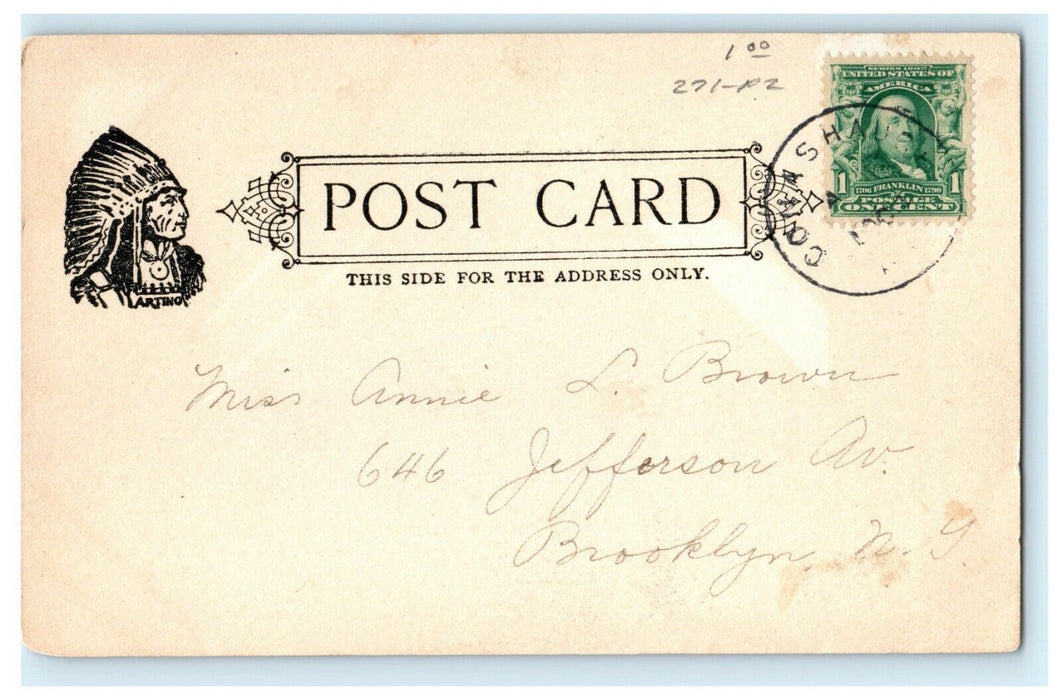 1 00
271-P2
SERIES 1902
UNITED STATES OF
AMERICA
1 1706 FRANKLIN 1790 1
POSTAGE
ONE CENT
POST CARD
THIS SIDE FOR THE ADDRESS ONLY.
ARTINO
Miss Annie L. Brown
646 Jefferson Av.
Brooklyn, N.Y